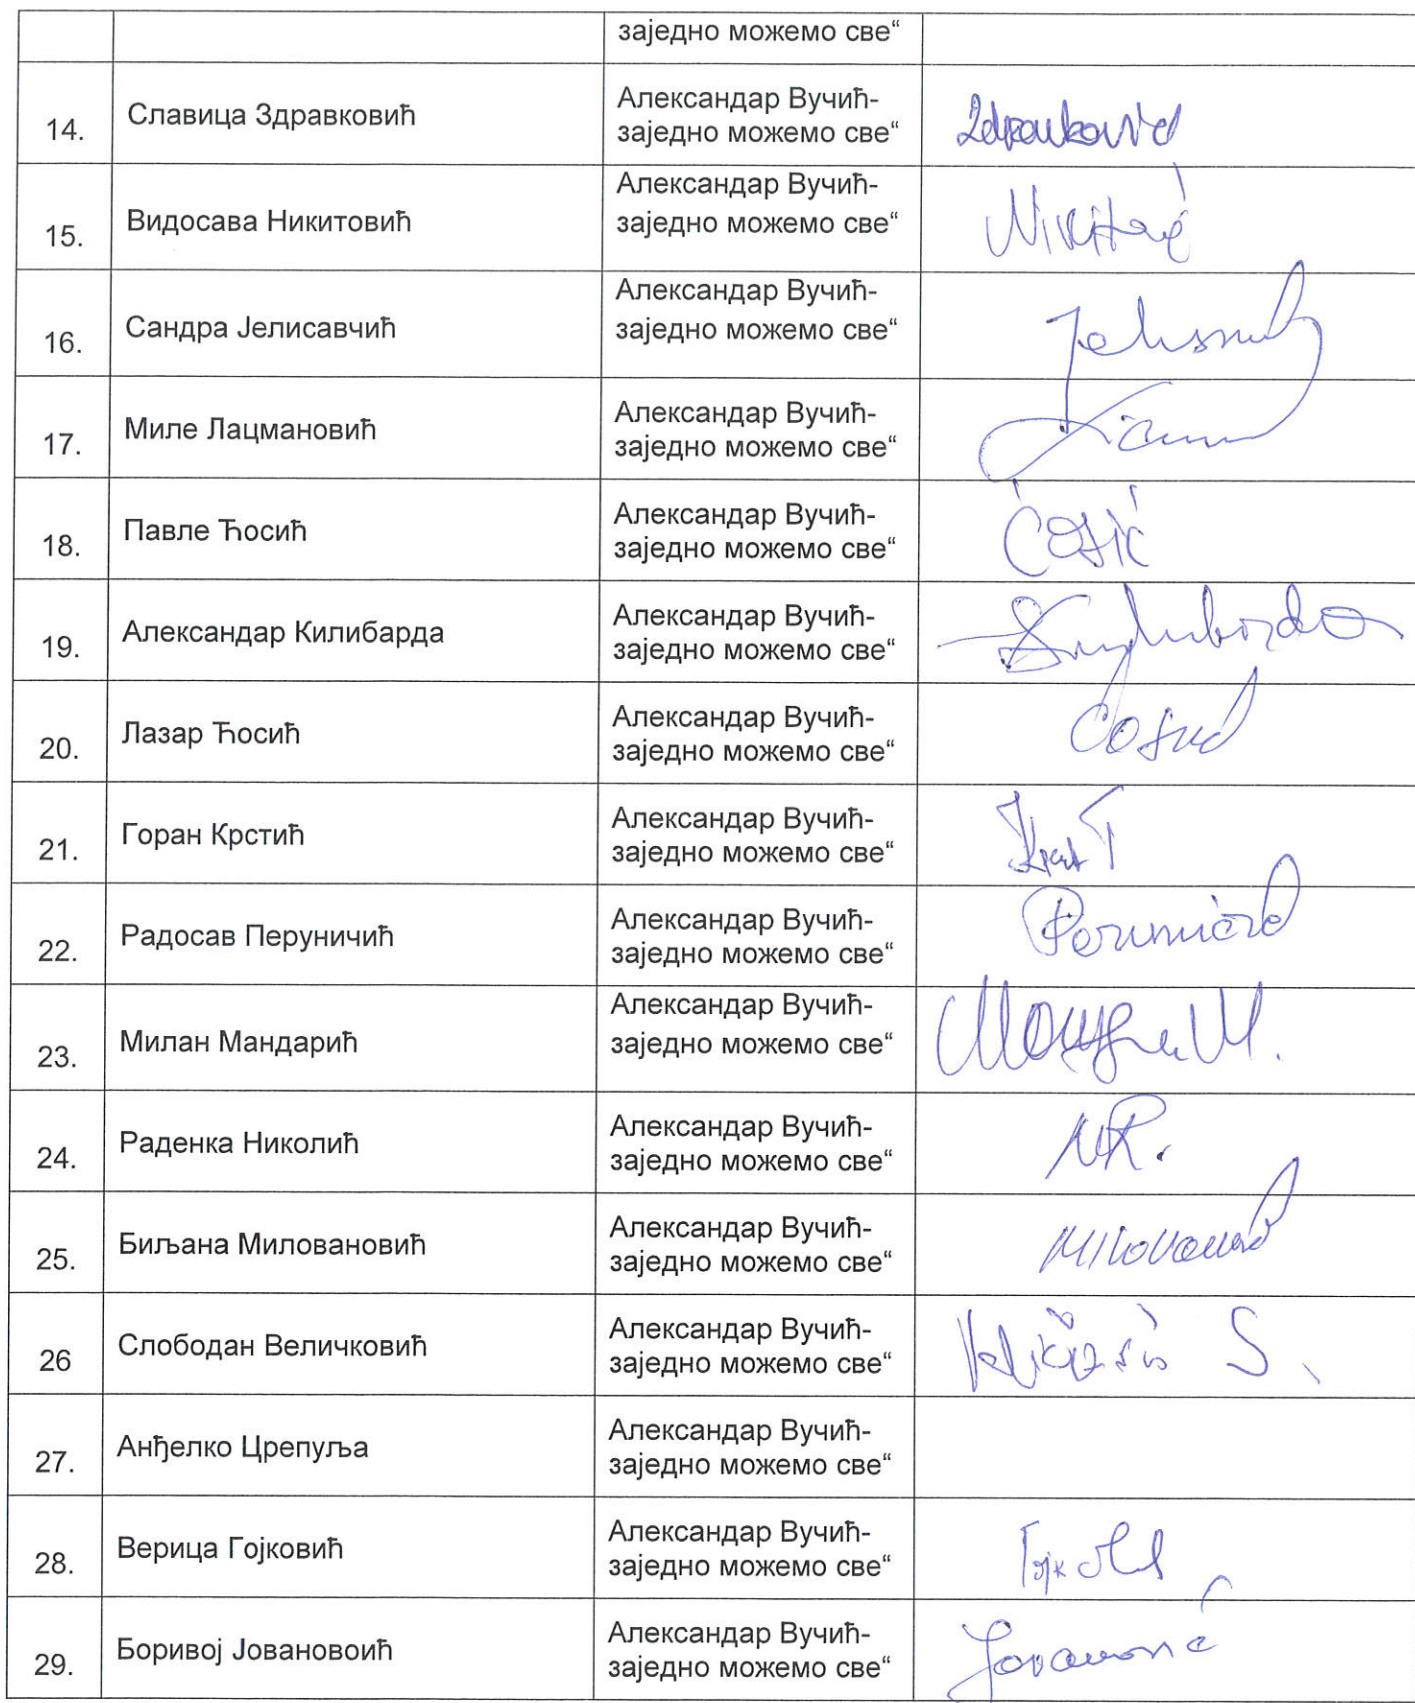 заједно можемо све“
14. Славица Здравковић Александар Вучић-
заједно можемо све“ Zdravković
15. Видосава Никитовић Александар Вучић-
заједно можемо све“
16. Сандра Јелисавчић Александар Вучић-
заједно можемо све“
17. Миле Лацмановић Александар Вучић-
заједно можемо све“
18. Павле Ћосић Александар Вучић-
заједно можемо све“ Ćosić
19. Александар Килибарда Александар Вучић-
заједно можемо све“
20. Лазар Ћосић Александар Вучић-
заједно можемо све“
21. Горан Крстић Александар Вучић-
заједно можемо све“
22. Радосав Перуничић Александар Вучић-
заједно можемо све“
23. Милан Мандарић Александар Вучић-
заједно можемо све“
24. Раденка Николић Александар Вучић-
заједно можемо све“ NR.
25. Биљана Миловановић Александар Вучић-
заједно можемо све“
26 Слободан Величковић Александар Вучић-
заједно можемо све“
27. Анђелко Црепуља Александар Вучић-
заједно можемо све“
28. Верица Гојковић Александар Вучић-
заједно можемо све“
29. Боривој Јовановоић Александар Вучић-
заједно можемо све“ Jovanović